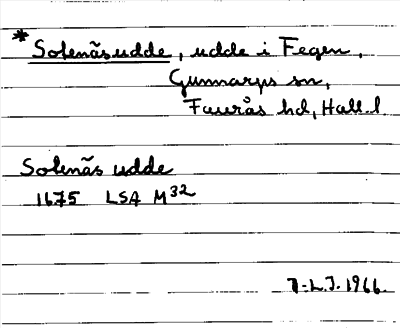 * Solenäsudde, udde i Fegen,
Gunnarps sn,
Faurås hd, Hall. l.
Solenäs udde
1675 LSA M32
7-L.J. 1966.